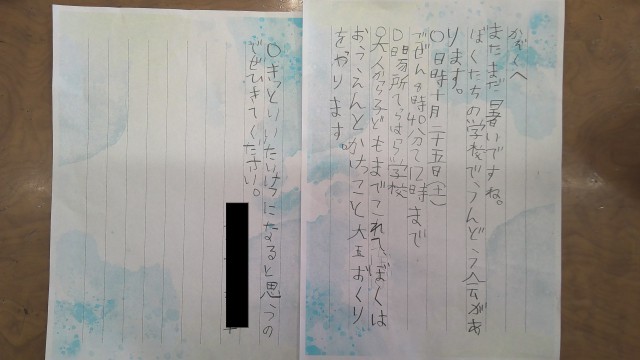 かぞくへ
まだまだ暑いですね。
ぼくたちの学校でうんどう会があ
ります。
〇日時十月二十五日(土)
ごぜん8時40分て12時まで
〇場所てらはらい学校
〇大人から子どもまでこれて、ぼくは
おうえんとかけっこと大玉おくり
をやります。
〇きっといいたいけつになると思うの
でぜひきてください。